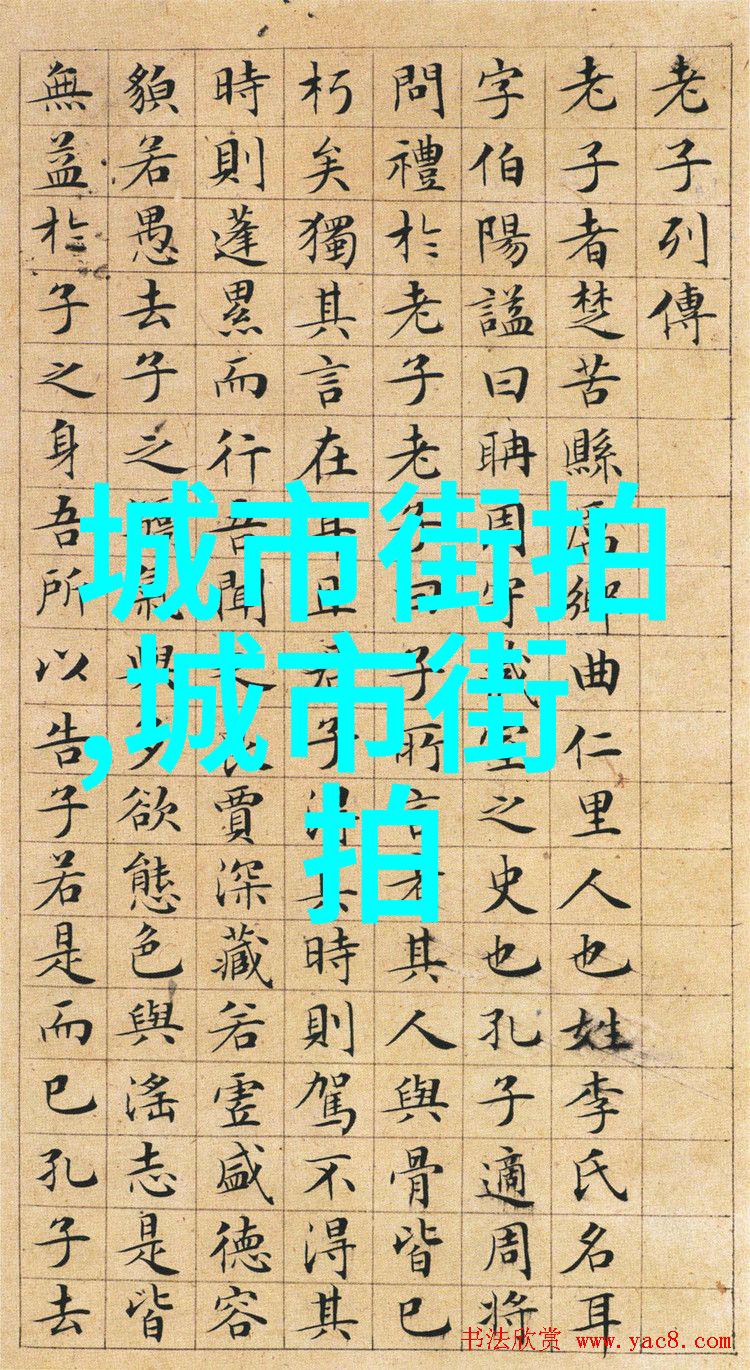 老子列傳
老子者楚苦縣厲鄉曲仁里人也姓李氏名耳
字伯陽謚曰聃周守藏室之史也孔子適周將
問禮於老子老子曰子所言者其人與骨皆已
朽矣獨其言在耳且君子得其時則駕不得其
時則蓬累而行吾聞之良賈深藏若虛盛德容
貌若愚去子之驕氣與多欲態色與淫志是皆
無益於子之身吾所以告子若是而已孔子去
城市街拍
,城市街
拍
书法欣赏 www.yac8.com